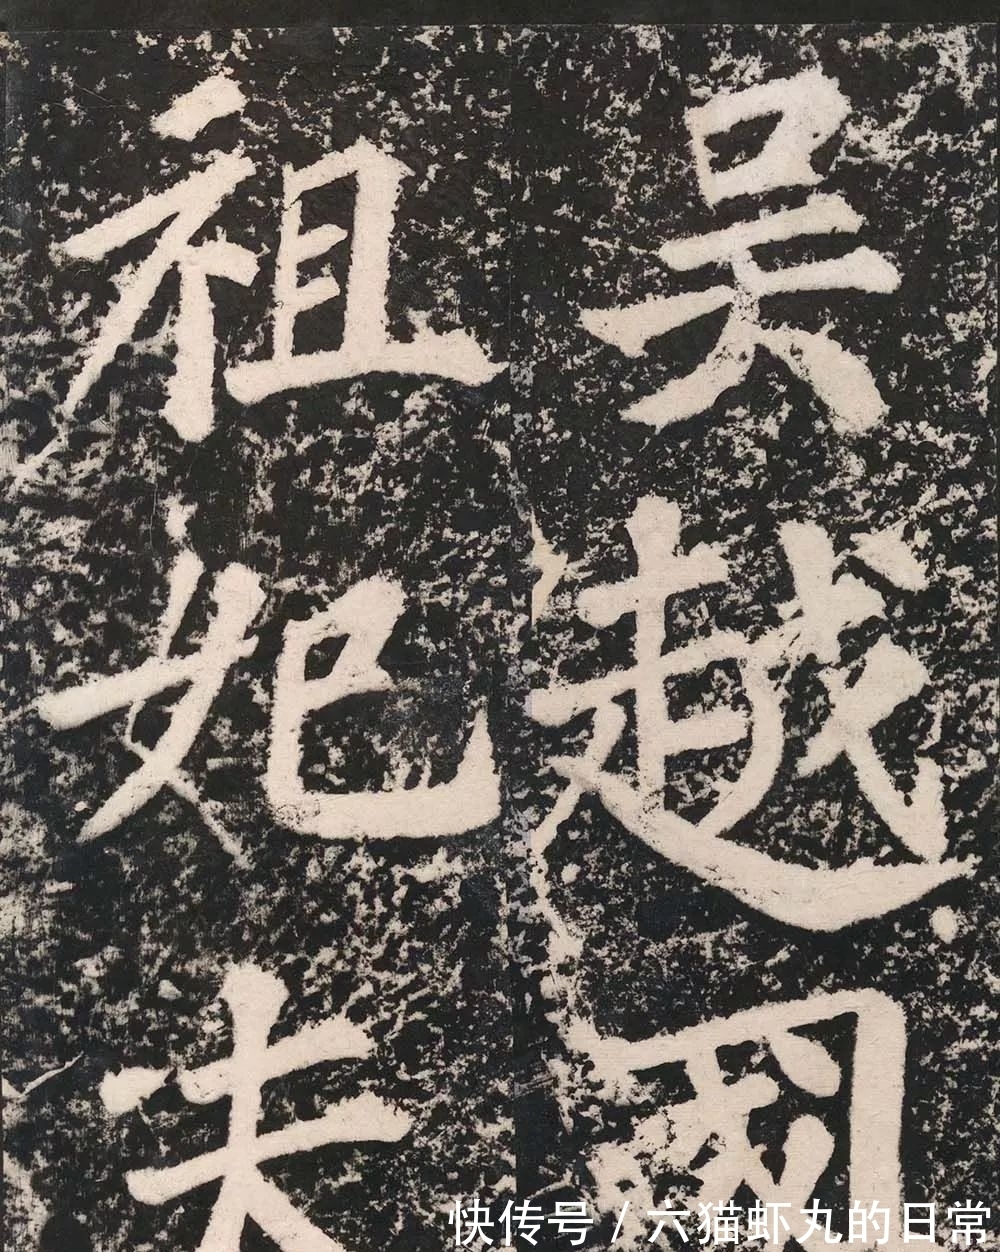 吳越國
祖妃夫
快传号 / 六猫虾丸的日常